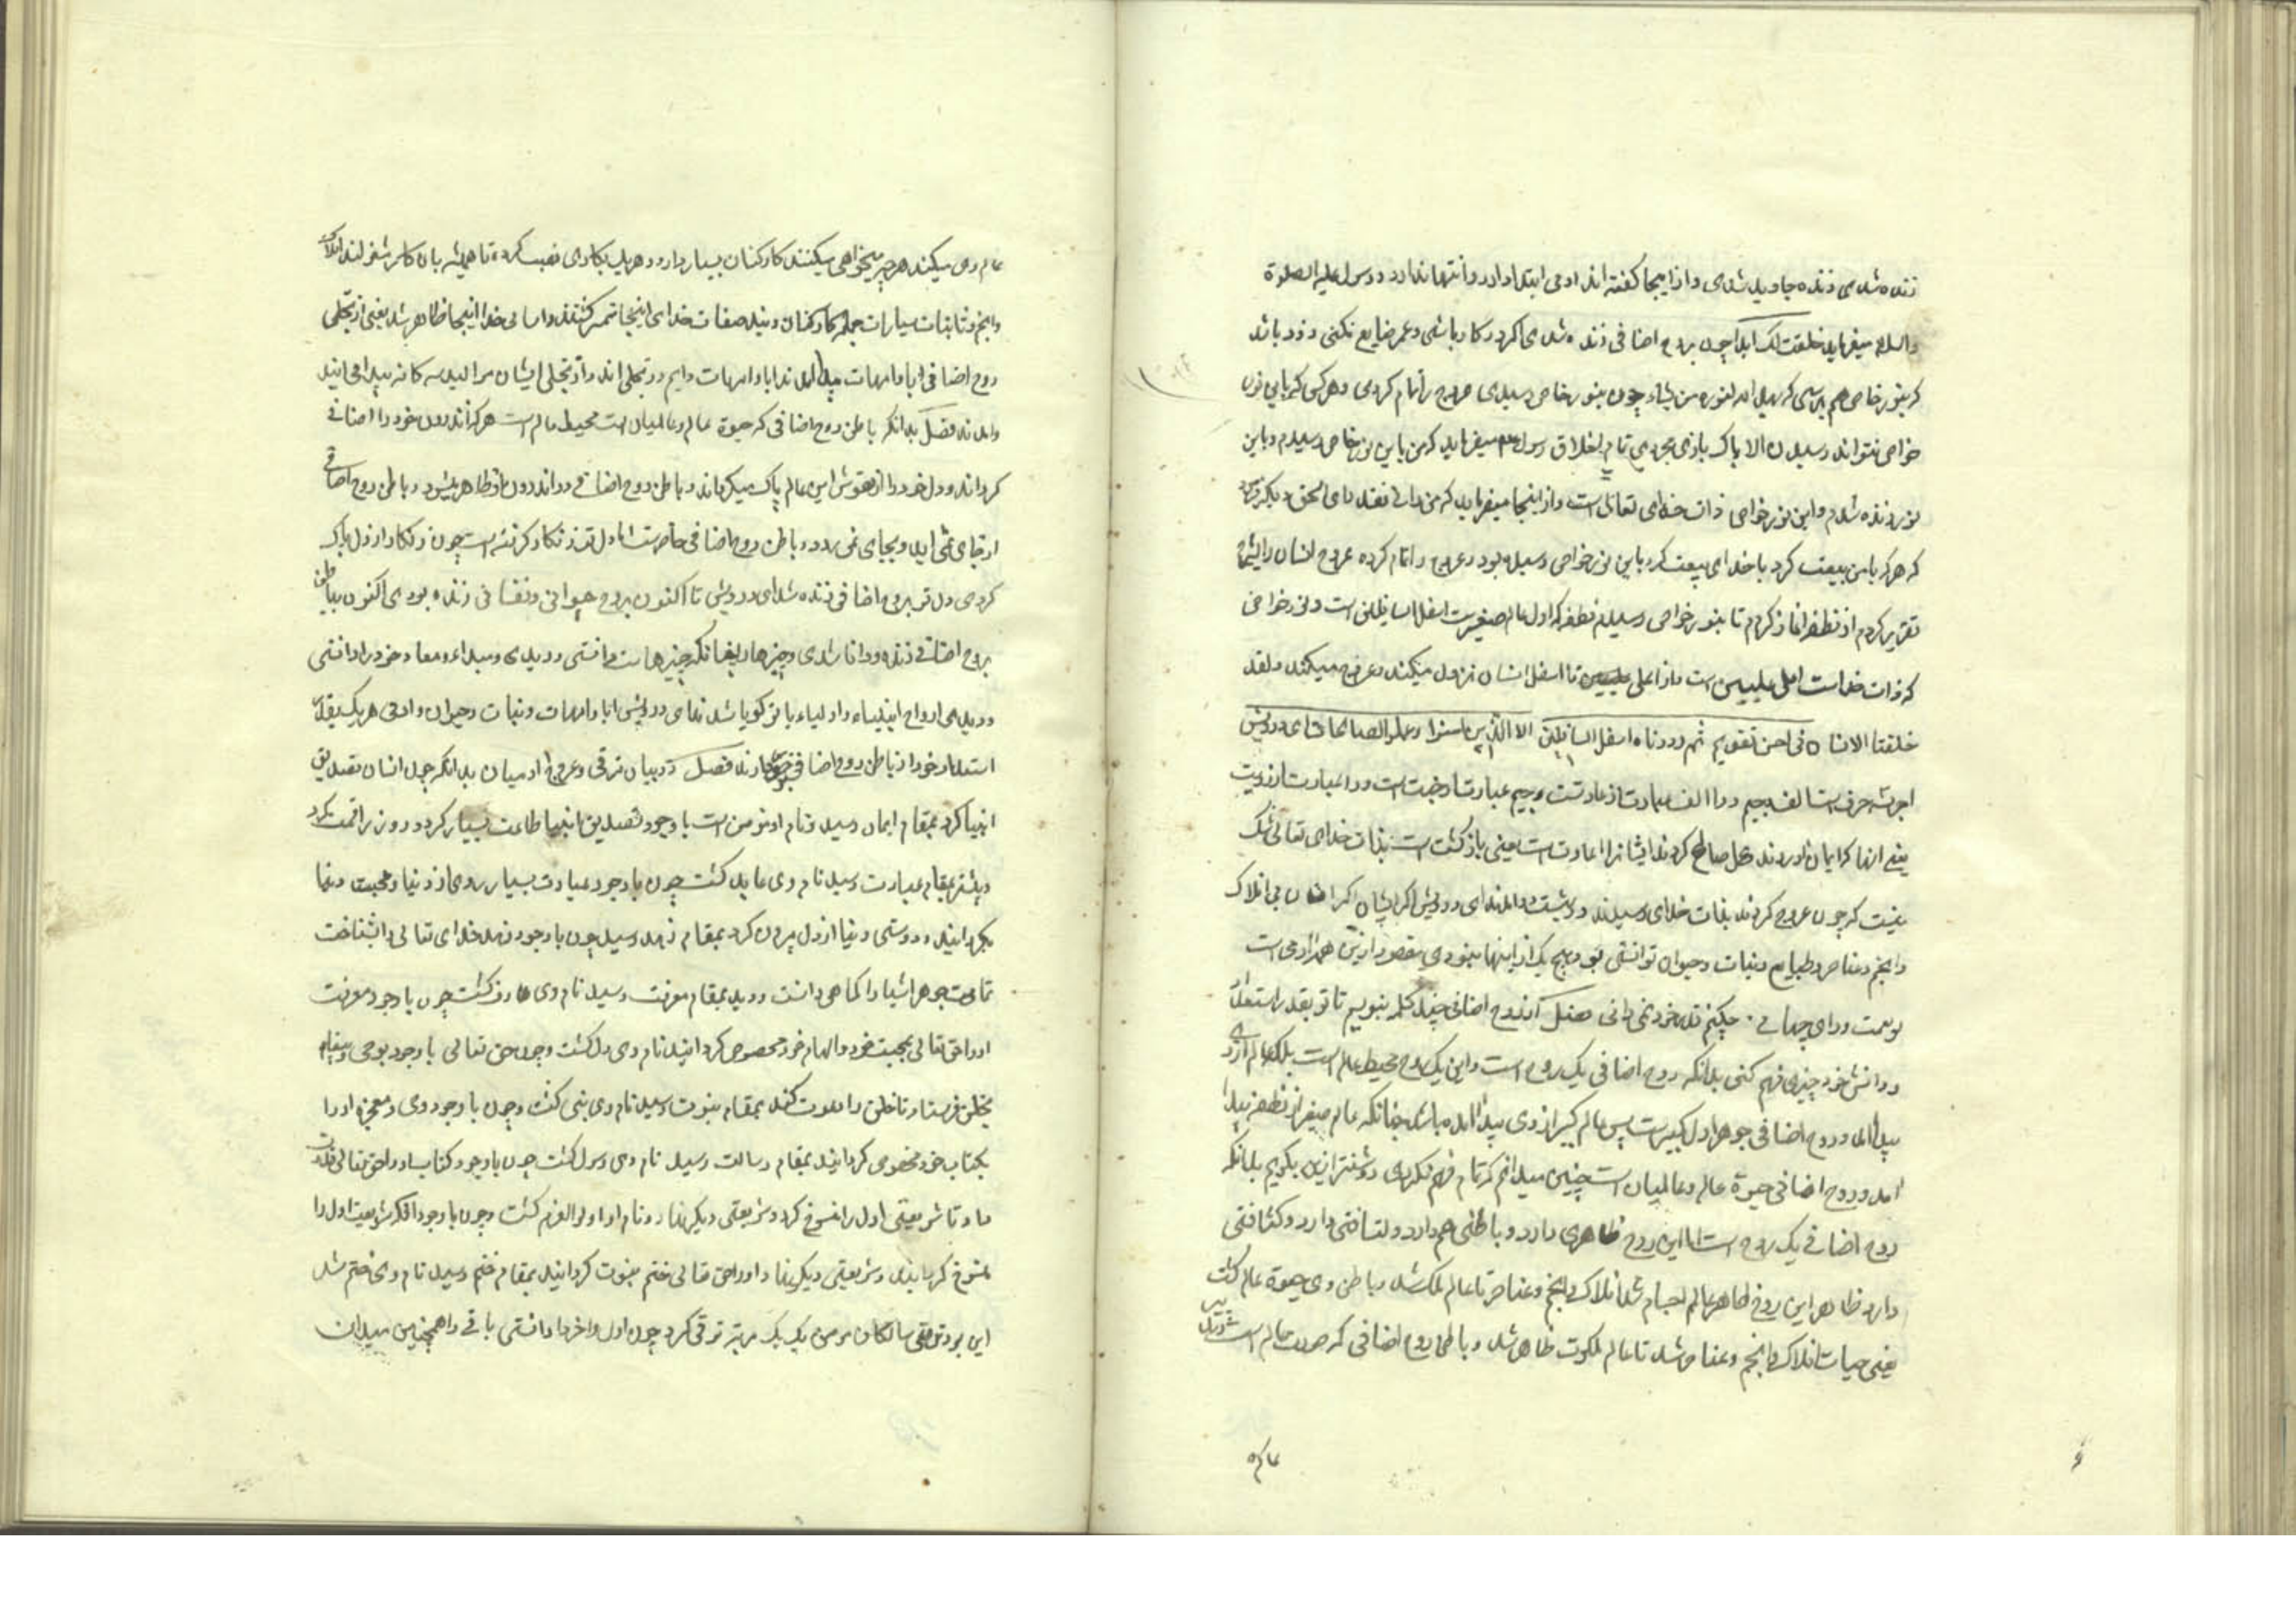 زنده شدی زنده جاوید شدی و از اینجا گفته اند ادمی ابتدا دارد و انتها ندارد و رسول علیه الصلوة
والسلام میفرماید خلقت للابد چون بروح اضافی زنده شدی اگر در کار باشی و عمر ضایع نکنی زود باشد
که بنور خاص هم برسی که یهدی الله لنوره من یشاء چون بنور خاص رسیدی عروج را تمام کردی و هر کس که باین نور
خواص نتواند رسیدن الا پاک بازی مجردی تمام اخلاق رسول میفرماید که من باین نور خاص رسیدم و باین
نور زنده شدم و این نور خواص ذات خدای تعالی است و از اینجا میفرماید که من رانی فقد رای الحق و دیگر فرمود
که هر که با من بیعت کرد با خدای بیعت کرد باین نور خواص رسیده بود و عروج را تمام کرده عروج انسان را بشما
تقریر کردم از نطفه اغاز کردم تا بنور خواص رسیدم نطفه که اول عالم صغیرست اسفل السافلین است و نور خواص
که ذات خداست اعلی علیین است و از اعلی علیین تا اسفل انسان نزول میکند و عروج میکند و لقد
خلقنا الانسان فی احسن تقویم ثم رددناه اسفل السافلین الا الذین امنوا و عملوا الصالحات ای درویش
اجر سه حرف است الف و جیم و را الف عبارت از عادتست و جیم عبارت از جنت است و را عبارت از رویت
یعنی انها که ایمان اوردند و عمل صالح کردند ایشانرا اعادت است یعنی باز گشت است بذات خدای تعالی شک
نیست که چون عروج کردند بذات خدای رسیدند و در بهشت در امدند ای درویش اگر ایشان اگر انسان بی افلاک
و انجم و عناصر و طبایع و نبات و حیوان توانستی بود هیچ یک از اینها نبودی مقصود ازین همه ادمی است
تو بهمت ورای جهانی چکنم قدر خود نمی دانی فصل از روح اضافی چند کلمه بنویسم تا تو بقدر استعداد
و دانش خود چیزی فهم کنی بدانکه روح اضافی یک روح است و این یک روح محیط عالم است بلکه عالم از وی
پیدا امد و روح اضافی جوهر اول کبیرست پس عالم کبیر از وی پیدا امده باشد چنانکه عالم صغیر از نطفه پیدا
امد و روح اضافی حیوة عالم و عالمیان است چنین میدانم که تمام فهم نکردی روشنتر ازین بگویم بدانکه
روح اضافی یک روح است اما این روح ظاهری دارد و باطنی هم دارد و لتافتی دارد و کثافتی
دارد ظاهر این روح ظاهر عالم اجسام شد افلاک و انجم و عناصر تا عالم ملک شد و باطن وی حیوة عالم گشت
یعنی حیات افلاک و انجم و عناصر شد تا عالم ملکوت ظاهر شد و باطن روح اضافی که صورت عالم است تدبیر
عالم
عالم وی میکند هر چه میخواهی میکنند کارکنان بسیار دارد و هریک بکاری نصب کرده تا همیشه بان کار مشغولند افلاک
و انجم و ثابتات سیارات جمله کارکنان ویند صفات خدای اینجا متمیز گشتند و اسامی خدا اینجا ظاهر شد یعنی از تجلی
روح اضافی ابا و امهات پیدا امدند ابا و امهات دایم در تجلی اند و از تجلی ایشان موالید سه کانه پیدا می ایند
و امدند فصل بدانکه باطن روح اضافی که حیوة عالم و عالمیان است محیط عالم است هر که اندرون خود را صافی
کرداند و دل خود را از نقوش این عالم پاک میکرداند و باطن روح اضافی در اندرون او ظاهر میشود و باطن روح اضافی
از جای نمی اید و بجای نمی رود و باطن روح اضافی حاضرست اما دل تو زنکار گرفته است چون زنکار از دل پاک
کردی دل تو بروح اضافی زنده شد ای درویش تا اکنون بروح حیوانی و نفسانی زنده بودی اکنون بباطن
بروح اضافی زنده و دانا شدی و چیزها را چنانکه چیزها ست دانستی و دیدی و مبداء و معاد خود را دانستی
و دیدی ارواح انبیاء و اولیاء با تو گویا شدند ای درویش ابا و امهات و نبات و حیوان و ادمی هر یک بقدر
استعداد خود از باطن روح اضافی برخوردارند فصل در بیان ترقی و عروج ادمیان بدانکه چون انسان تصدیق
انبیا کرد بمقام ایمان رسید و نام او مومن است با وجود تصدیق انبیا طاعت بسیار کرد و روز را قسمت کرد
و بیشتر بمقام عبادت رسید نام وی عابد گشت چون با وجود عبادت بسیار روی از دنیا و محبت دنیا
بگردانید و دوستی دنیا از دل بیرون کرد بمقام زهد رسید چون با وجود زهد خدای تعالی را بشناخت
تمامت جوهر اشیا را کماهی دانست و دید بمقام معرفت رسید نام وی عارف گشت چون با وجود معرفت
او را حق تعالی بمحبت خود و الهام خود مخصوص کردانید نام وی ولی گشت و چون حق تعالی با وجود بوحی و پیغام
بخلق فرستاد تا خلق را دعوت کند بمقام نبوت رسید نام وی نبی گشت و چون با وجود وحی و معجزه او را
بکتاب خود مخصوص کردانید بمقام رسالت رسید نام وی رسول گشت چون با وجود کتاب او را حق تعالی قدرت
داد تا شریعتی اول را منسوخ کرد و شریعتی دیگر نهاد و نام او اولوالعزم گشت و چون با وجود انکه شریعت اول را
منسوخ کردانید و شریعتی دیگر نهاد او را حق تعالی ختم نبوت کردانید بمقام ختم رسید نام وی ختم شد
این بود ترقی سالکان مومن یک یک مرتبه ترقی کرد چون اول و اخر را دانستی باقی را همچنین میدان